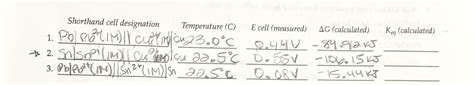 Shorthand cell designation Temperature (C) E cell (measured) ΔG (calculated) Keq (calculated)
1. Pb|Pb²⁺(1M)||Cu²⁺(1M)|Cu 23.0°C 0.44V -84.92 KJ
→ 2. Sn|Sn²⁺(1M)|| Cu 22.5°C 0.55V -106.15 KJ
3. Pb|Pb²⁺(1M)||Sn²⁺(1M)|Sn 22.5°C 0.08V -15.44 KJ